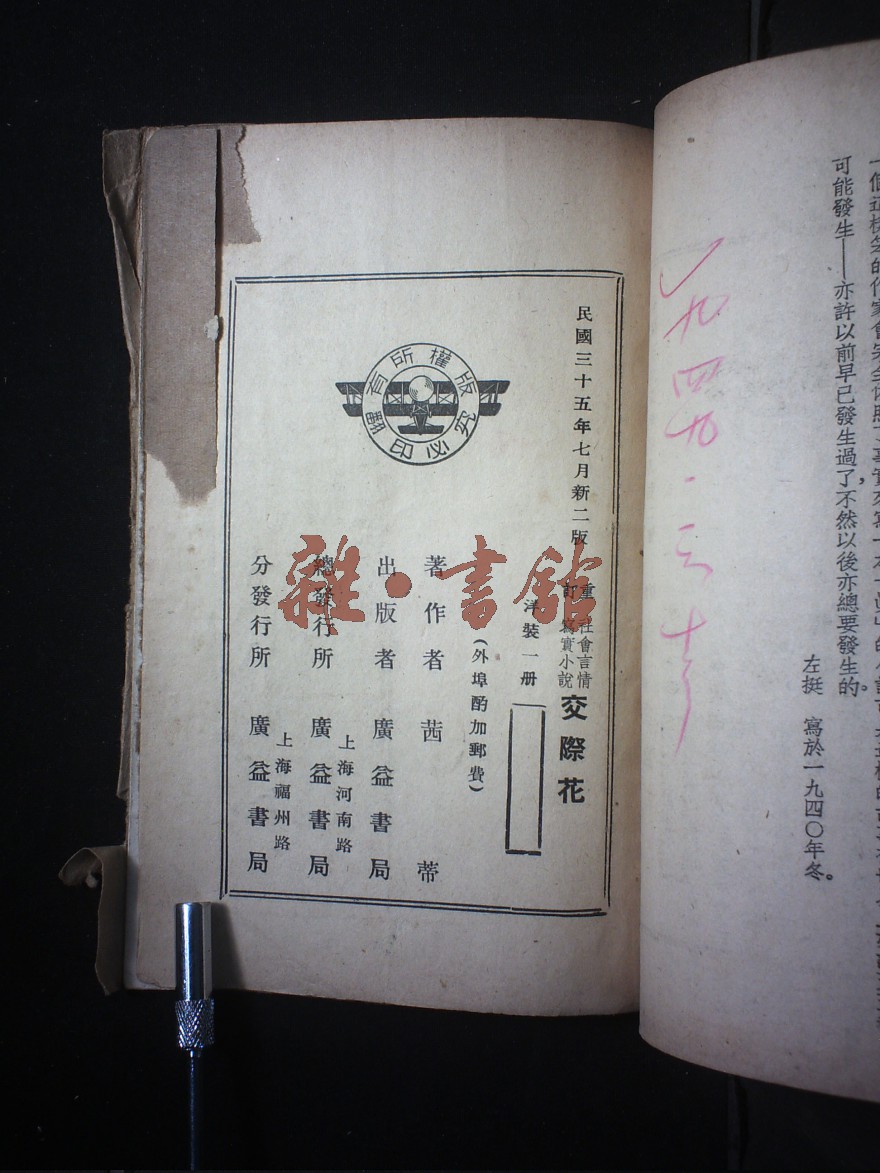 可能發生——亦許以前早已發生過了，不然以後亦總要發生的。
左挺　寫於一九四〇年冬。
一九四九·三·十
民國三十五年七月新二版
重訂
社會言情
寫實小說
交際花
洋裝一册
(外埠酌加郵費)
著作者　茜蒂
出版者　廣益書局
上海河南路
總發行所　廣益書局
上海福州路
分發行所　廣益書局
版權所有
翻印必究
雜·書館